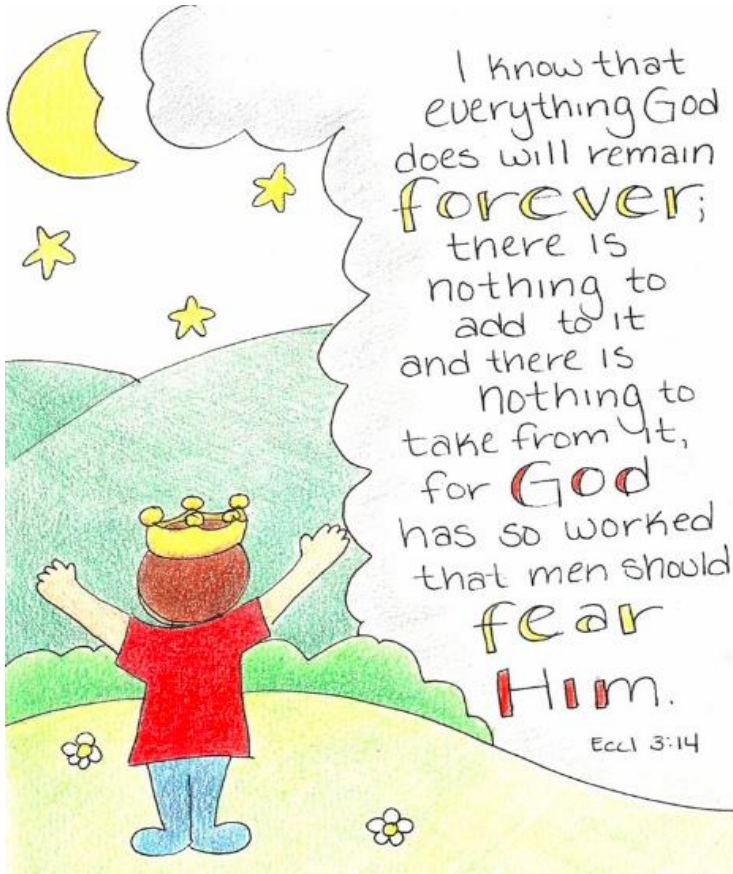 I know that
everything God
does will remain
forever;
there is
nothing to
add to it
and there is
nothing to
take from it,
for God
has so worked
that men should
fear
Him.
Eccl 3:14